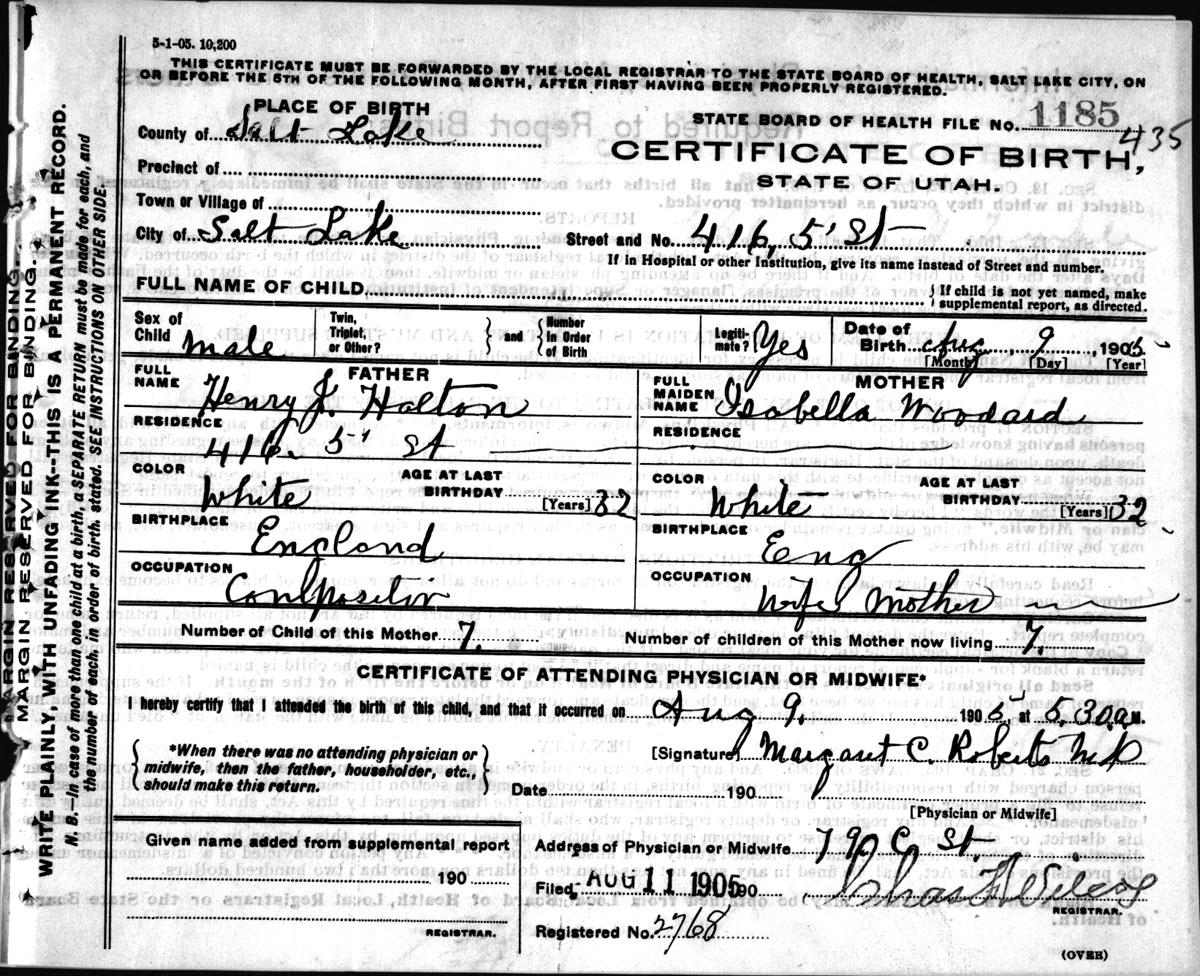 5-1-05. 10,200
THIS CERTIFICATE MUST BE FORWARDED BY THE LOCAL REGISTRAR TO THE STATE BOARD OF HEALTH, SALT LAKE CITY, ON
OR BEFORE THE 5TH OF THE FOLLOWING MONTH, AFTER FIRST HAVING BEEN PROPERLY REGISTERED.
PLACE OF BIRTH
County of Salt Lake
STATE BOARD OF HEALTH FILE No. 1185
435
Precinct of
CERTIFICATE OF BIRTH,
STATE OF UTAH.
Town or Village of
City of Salt Lake
Street and No. 416, 5' St
If in Hospital or other Institution, give its name instead of Street and number.
FULL NAME OF CHILD
If child is not yet named, make
supplemental report, as directed.
Sex of Child Male
Twin, Triplet, or Other?
and
Number in Order of Birth
Legiti-mate? Yes
Date of Birth Aug, 9, 1905
[Month] [Day] [Year]
FATHER
FULL NAME Henry J. Halton
RESIDENCE
416. 5' St
COLOR White
AGE AT LAST BIRTHDAY 32
[Years]
BIRTHPLACE
England
OCCUPATION
Compositor
MOTHER
FULL MAIDEN NAME Isabella Woodard
RESIDENCE
COLOR White
AGE AT LAST BIRTHDAY 32
[Years]
BIRTHPLACE
Eng
OCCUPATION
Wife Mother
Number of Child of this Mother 7.
Number of children of this Mother now living 7.
CERTIFICATE OF ATTENDING PHYSICIAN OR MIDWIFE*
I hereby certify that I attended the birth of this child, and that it occurred on Aug 9. 1905, at 5,30 a M.
*When there was no attending physician or
midwife, then the father, householder, etc.,
should make this return.
[Signature] Margaret C. Roberts M D
Date 190
[Physician or Midwife]
Given name added from supplemental report
190
REGISTRAR.
Address of Physician or Midwife 79 C St.
Filed AUG 11 1905 190
REGISTRAR.
Registered No. 2768
(OVER)
MARGIN RESERVED FOR BINDING.
MARGIN RESERVED FOR BINDING.
WRITE PLAINLY, WITH UNFADING INK--THIS IS A PERMANENT RECORD.
N. B.--In case of more than one child at a birth, a SEPARATE RETURN must be made for each, and
the number of each, in order of birth, stated. SEE INSTRUCTIONS ON OTHER SIDE.